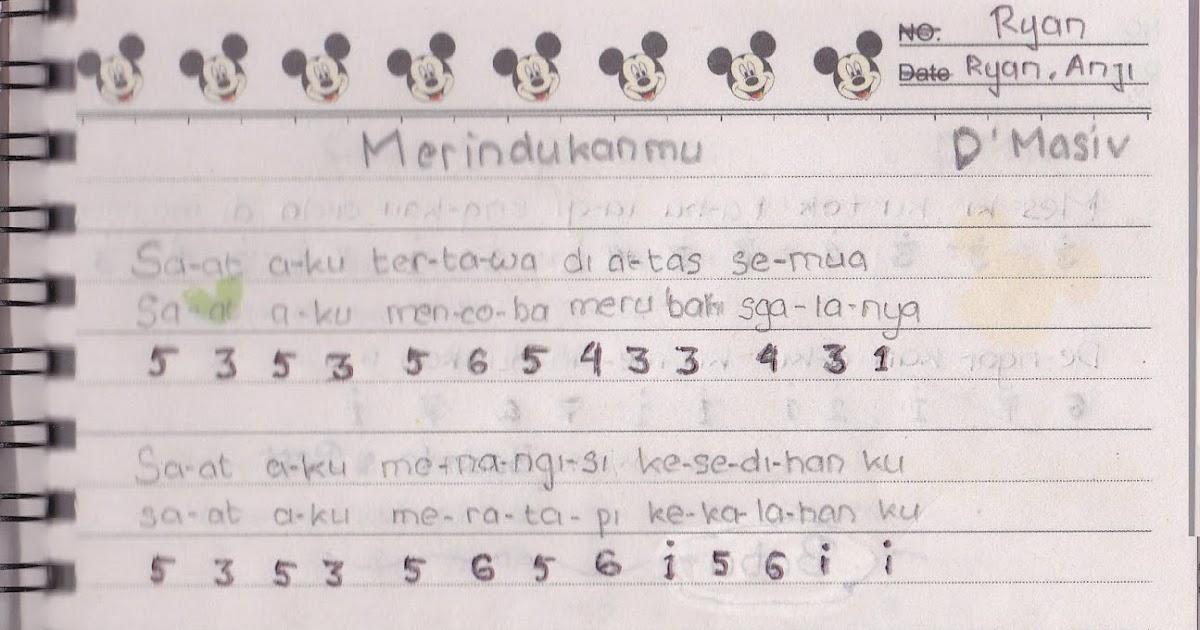 NO. Ryan
Date Ryan, Anji
Merindukanmu D'Masiv
Sa-at a-ku ter-ta-wa di a-tas se-mua
Sa-at a-ku men-co-ba meru bah sga-la-nya
5 3 5 3 5 6 5 4 3 3 4 3 1
Sa-at a-ku me-na-ngi-si ke-se-di-han ku
sa-at a-ku me-ra-ta-pi ke-ka-la-han ku
5 3 5 3 5 6 5 6 i 5 6 i i